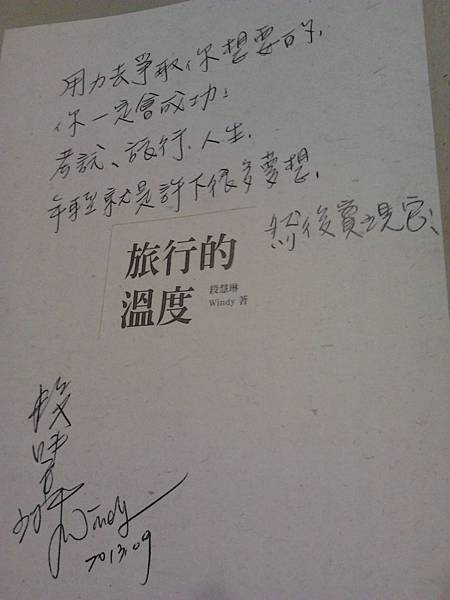 用力去爭取你想要的,
你一定會成功!
考試、旅行、人生,
年輕就是許下很多夢想,
然後實現它!
旅行的
溫度
段慧琳
Windy 著
段慧琳
Windy
2013.09